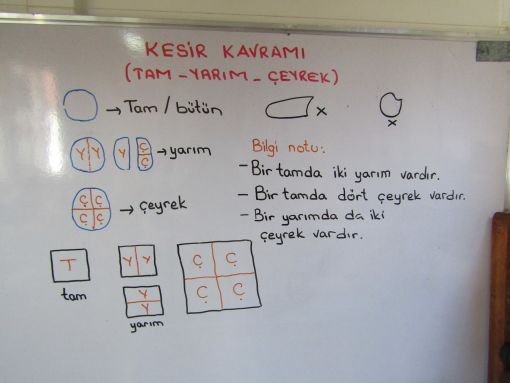 KESİR KAVRAMI
(TAM - YARIM - ÇEYREK)
→ Tam / bütün
x
x
Y Y Y Ç Ç → yarım
Ç Ç Ç Ç → çeyrek
Bilgi notu:
- Bir tamda iki yarım vardır.
- Bir tamda dört çeyrek vardır.
- Bir yarımda da iki
çeyrek vardır.
T
tam
Y Y
Y
Y
yarım
Ç Ç
Ç Ç